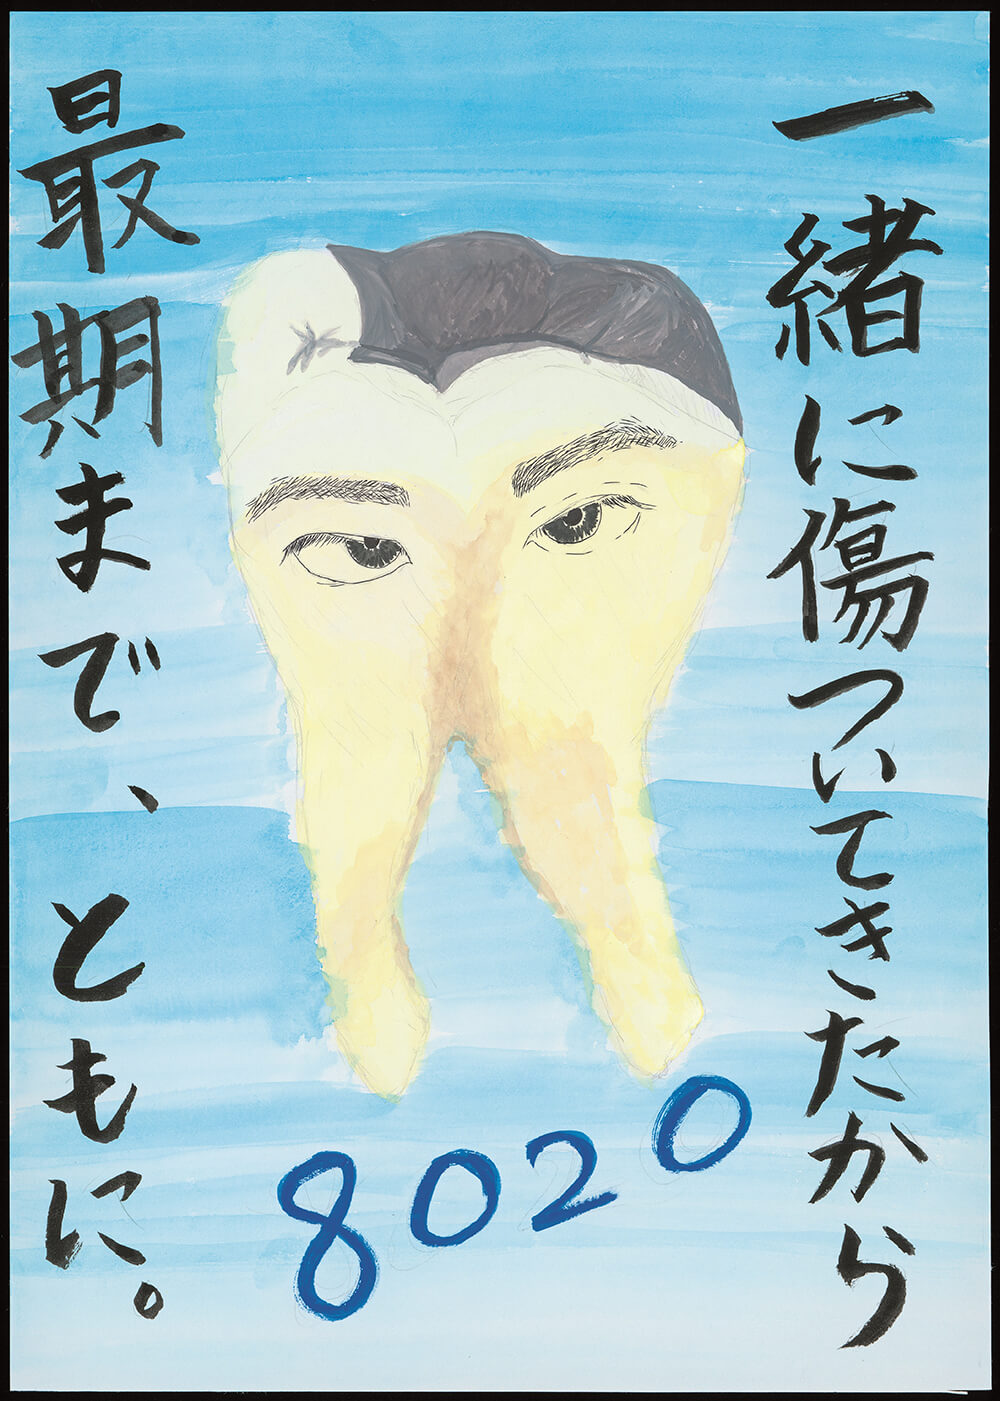 一緒に傷ついてきたから
最期まで、ともに。
8020